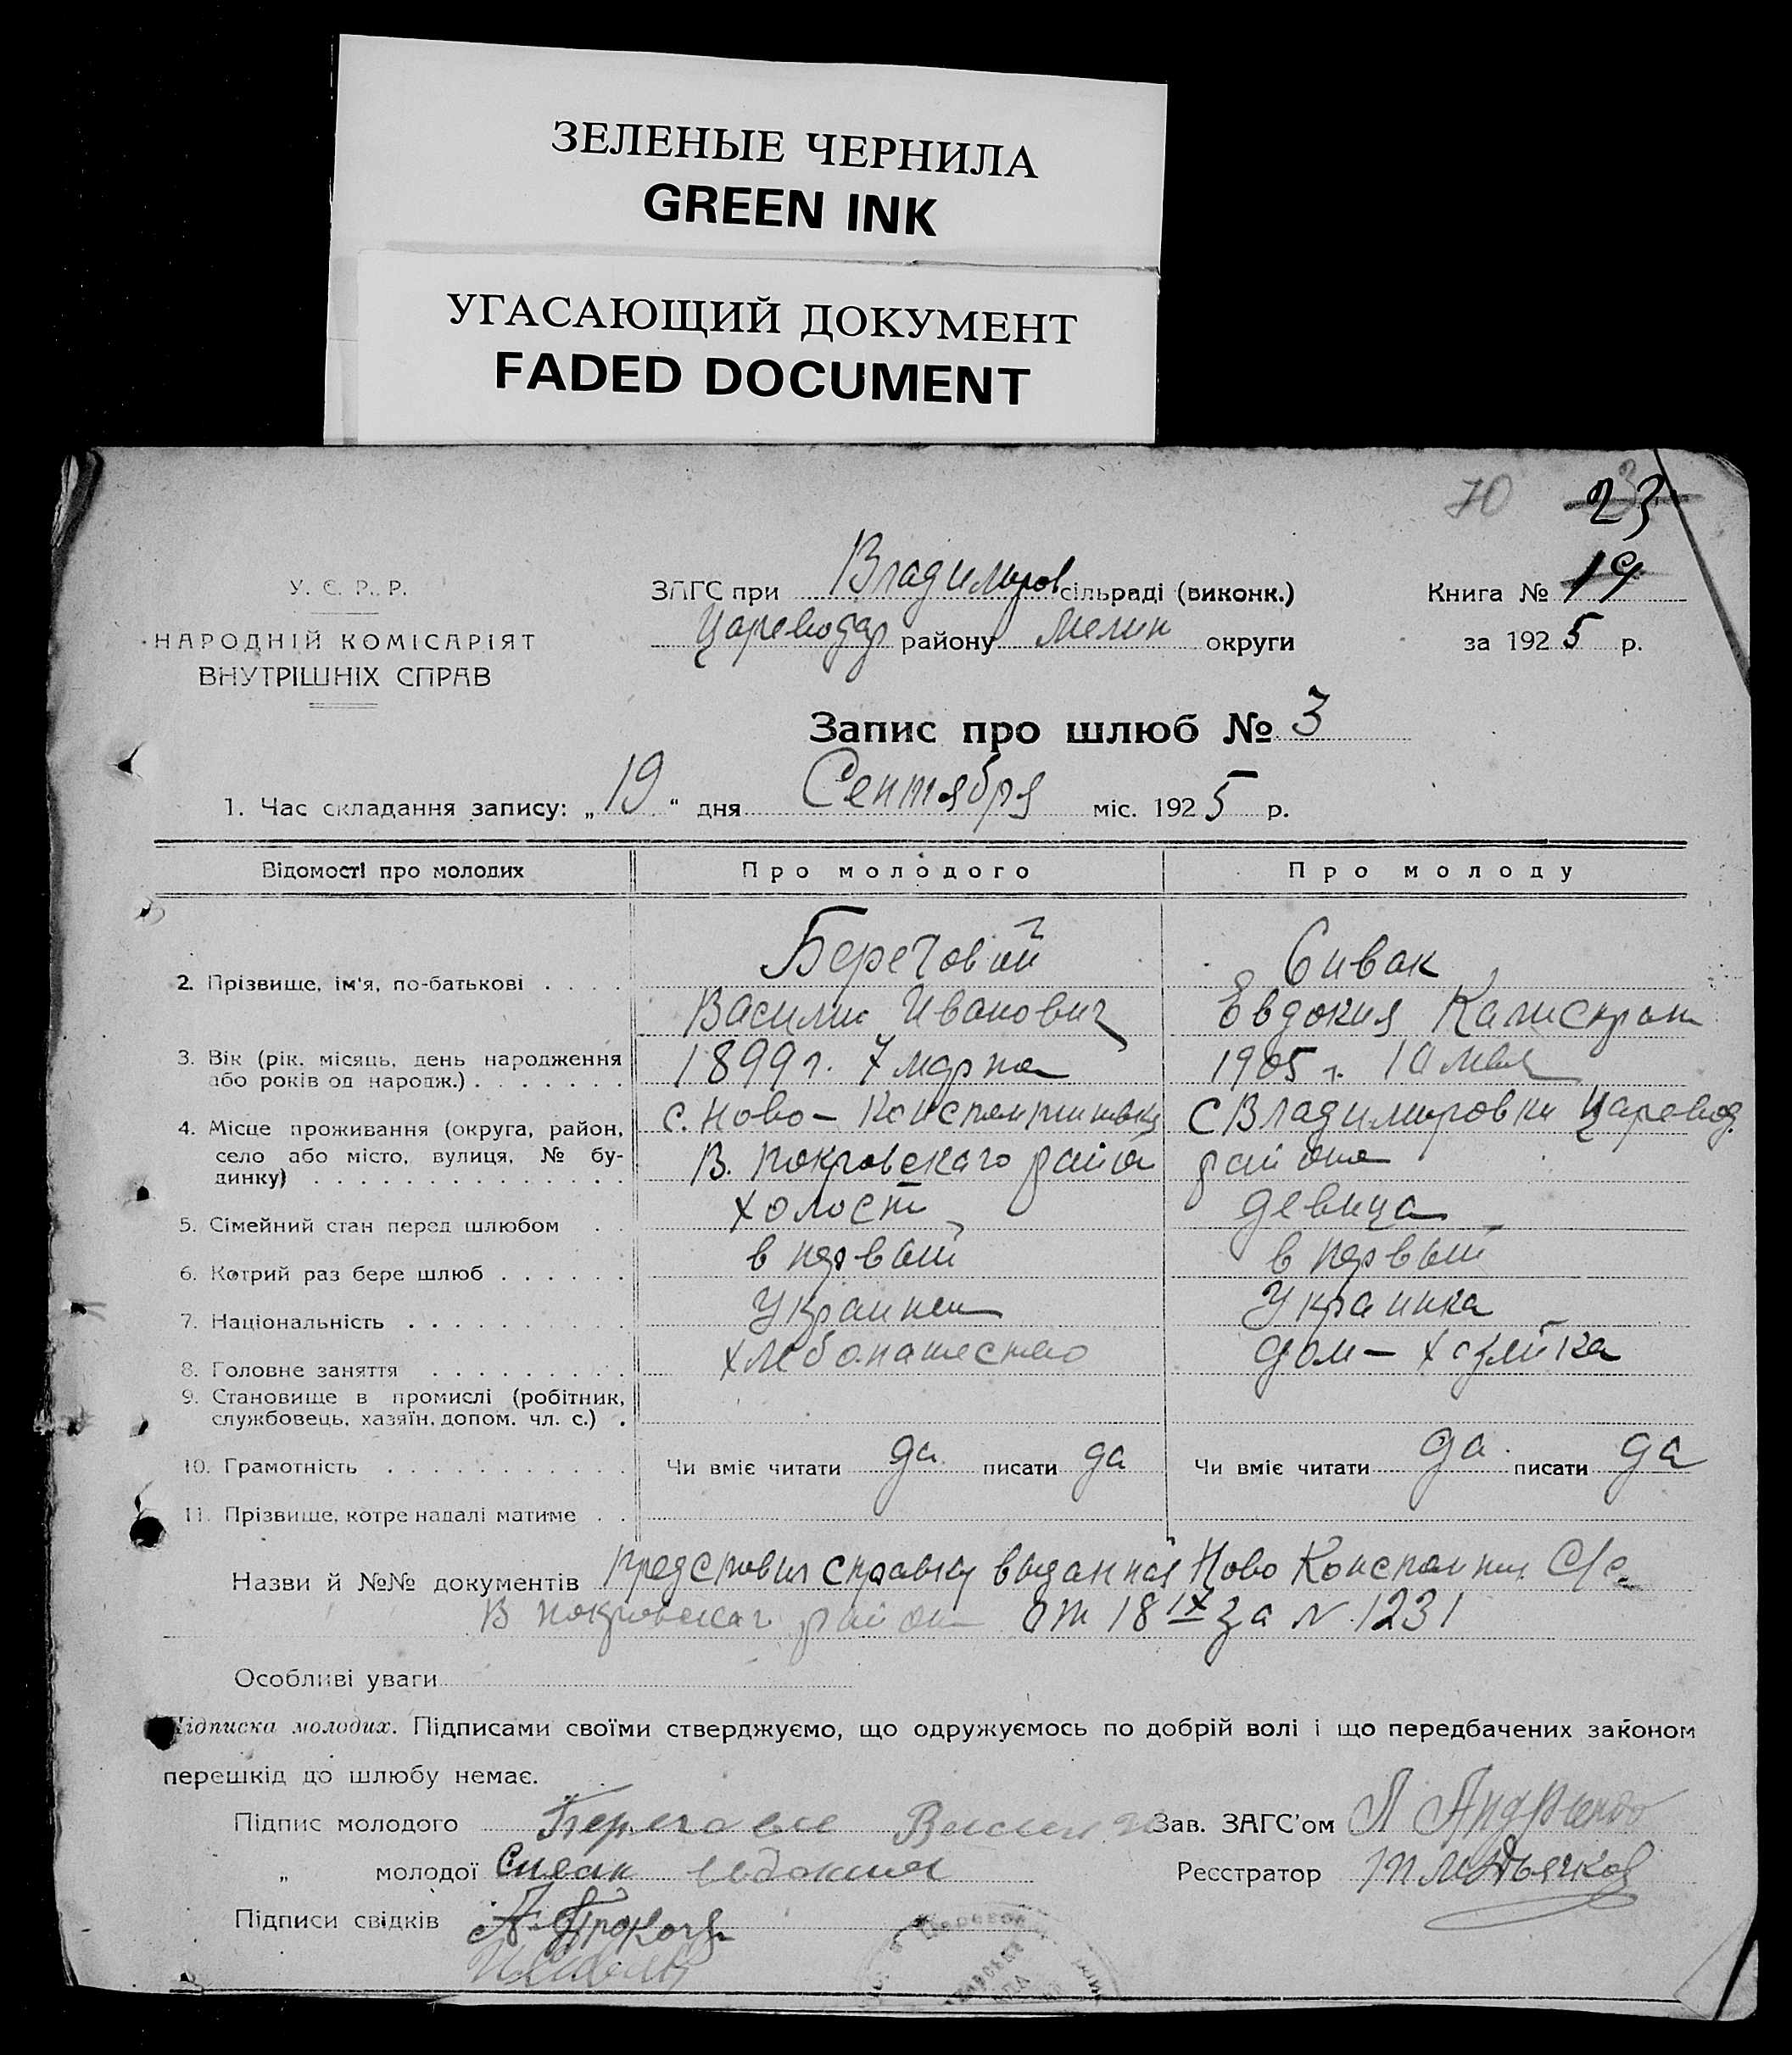 ЗЕЛЕНЫЕ ЧЕРНИЛА
GREEN INK
УГАСАЮЩИЙ ДОКУМЕНТ
FADED DOCUMENT
70 23
У. Є. Р. Р.
НАРОДНІЙ КОМІСАРІЯТ
ВНУТРІШНІХ СПРАВ
ЗАГС при Владимиров сільраді (виконк.)
Цареводар району Мелит округи
Книга № 19
за 1925 р.
Запис про шлюб № 3
1. Час складання запису: „19“ дня Сентября міс. 1925 р.
Відомості про молодих Про молодого Про молоду
2. Прізвище, ім'я, по-батькові . . . . Береговой Сивак
Василий Иванович Евдокия Калистрат
3. Вік (рік, місяць, день народження або років од народж.) . . . . . . . 1899 г. 7 марта 1905 г. 10 мая
4. Місце проживання (округа, район, село або місто, вулиця, № будинку) . . . . . . . . . . . . . . с. Ново-Константиновка В. Покровскаго района с Владимировки Царевод. района
5. Сімейний стан перед шлюбом . . холост девица
6. Котрий раз бере шлюб . . . . . . в первый в первый
7. Національність . . . . . . . . . . Украинец Украинка
8. Головне заняття . . . . . . . . . хлебопашество дом-хозяйка
9. Становище в промислі (робітник, службовець, хазяїн, допом. чл. с.) .
10. Грамотність . . . . . . . . . . . Чи вміє читати да писати да Чи вміє читати да писати да
11. Прізвище, котре надалі матиме . .
Назви й №№ документів представил справку выданная Ново Константин С/с
В Покровскаг района от 18 IX за N 1231
Особливі уваги
Підписка молодих. Підписами своїми стверджуємо, що одружуємось по добрій волі і що передбачених законом
перешкід до шлюбу немає.
Підпис молодого Береговой Василий Зав. ЗАГС'ом
„ молодої Сивак Евдокия Реєстратор
Підписи свідків